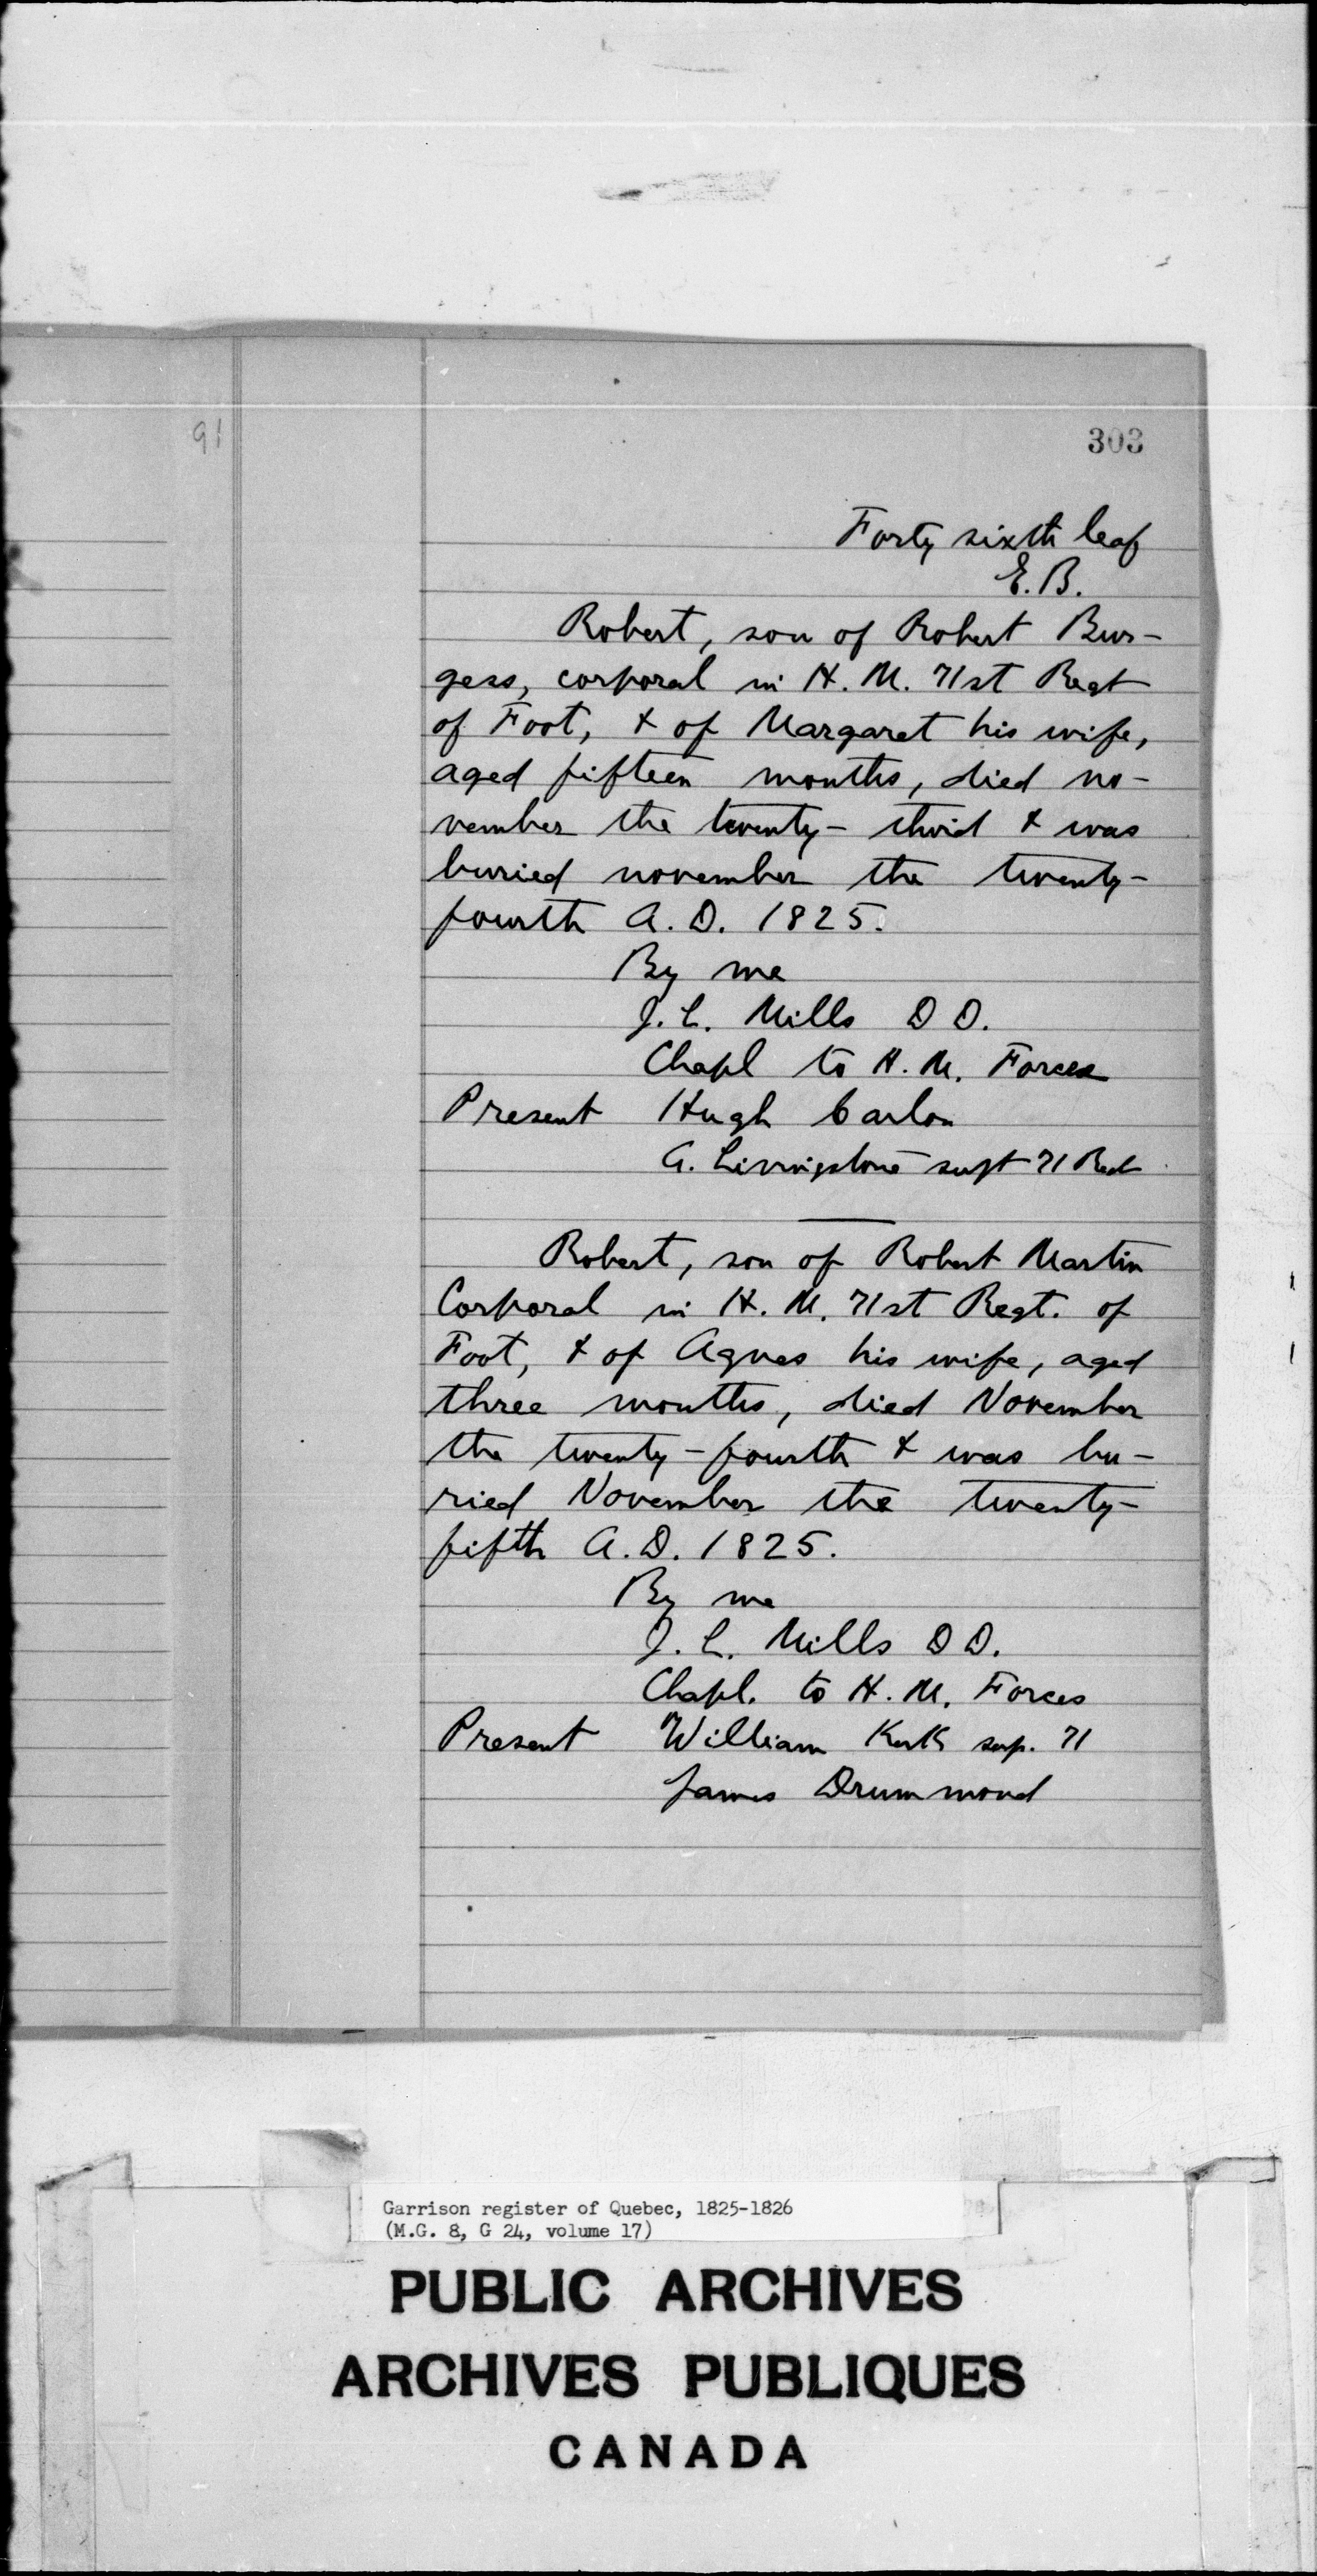 91
303
Forty sixth leaf
E. B.
Robert, son of Robert Bur-
gess, corporal in H. M. 71st Regt
of Foot, & of Margaret his wife,
aged fifteen months, died no-
vember the twenty- third & was
buried november the twenty-
fourth A. D. 1825.
By me
J. L. Mills D D.
Chapl to H. M. Forces
Present Hugh Carlon
A. Livingstone 71
Robert, son of Robert Martin
Corporal in H. M. 71st Regt. of
Foot, & of Agnes his wife, aged
three months, died November
the twenty-fourth & was bu-
ried November the twenty-
fifth A. D. 1825.
By me
J. L. Mills D D.
Chapl. to H. M. Forces
Present William Kirk 71
James Drummond
Garrison register of Quebec, 1825-1826
(M.G. 8, G 24, volume 17)
PUBLIC ARCHIVES
ARCHIVES PUBLIQUES
CANADA